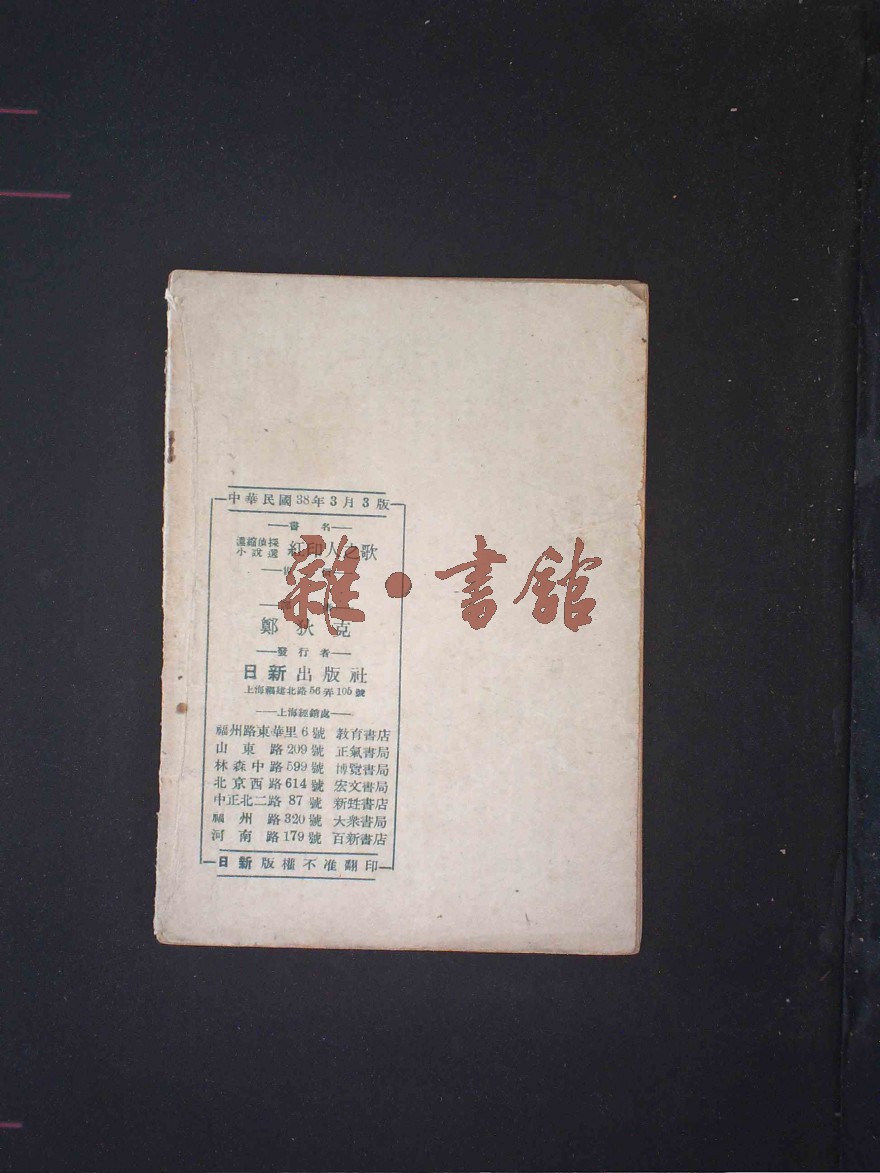 中華民國38年3月3版
書名
濃縮偵探
小說選
紅印人之歌
鄭狄克
發行者
日新出版社
上海福建北路56弄105號
上海經銷處
福州路東華里6號 教育書店
山東路209號 正氣書局
林森中路599號 博覽書局
北京西路614號 宏文書局
中正北二路87號 新甡書店
福州路320號 大衆書局
河南路179號 百新書店
日新版權不准翻印
雜·書館